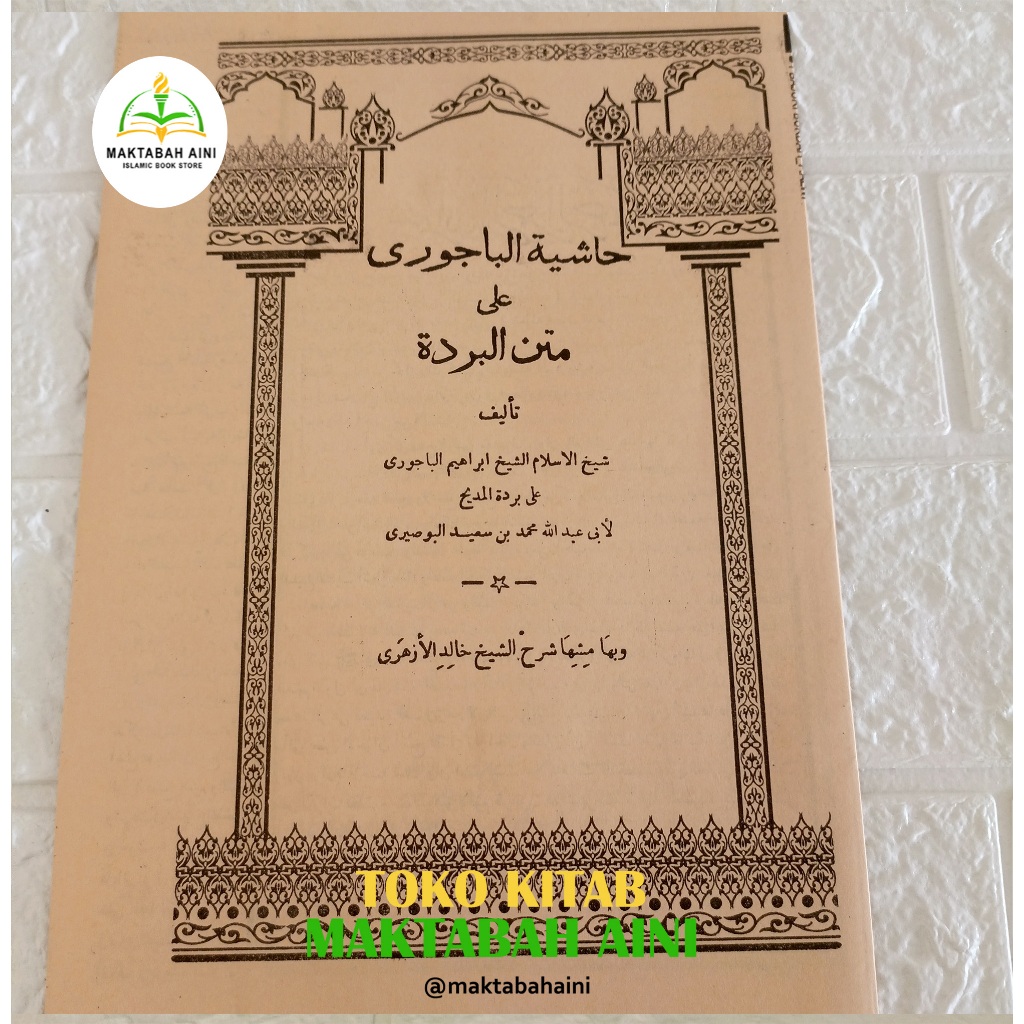 MAKTABAH AINI
ISLAMIC BOOK STORE
حاشية الباجورى
على
متن البردة
تأليف
شيخ الاسلام الشيخ ابراهيم الباجورى
على بردة المديح
لأبى عبد الله محمد بن سعيد البوصيرى
وبهامِشِهَا شرحْ الشيخ خالِدِ الأزهَرى
TOKO KITAB
MAKTABAH AINI
@maktabahaini